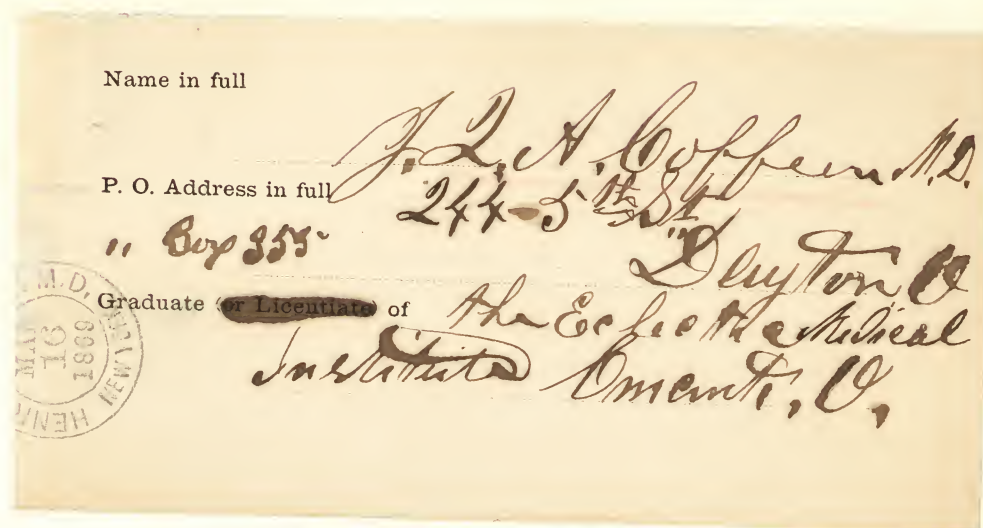 Name in full
J. Q. A. Coffeen M.D.
P. O. Address in full
244-5th St
" Box 355
Dayton O
Graduate (or Licentiate) of the Eclectic Medical
Institute Cincinnati, O.
M.D.
MAR
16
1869
HENR
NEW